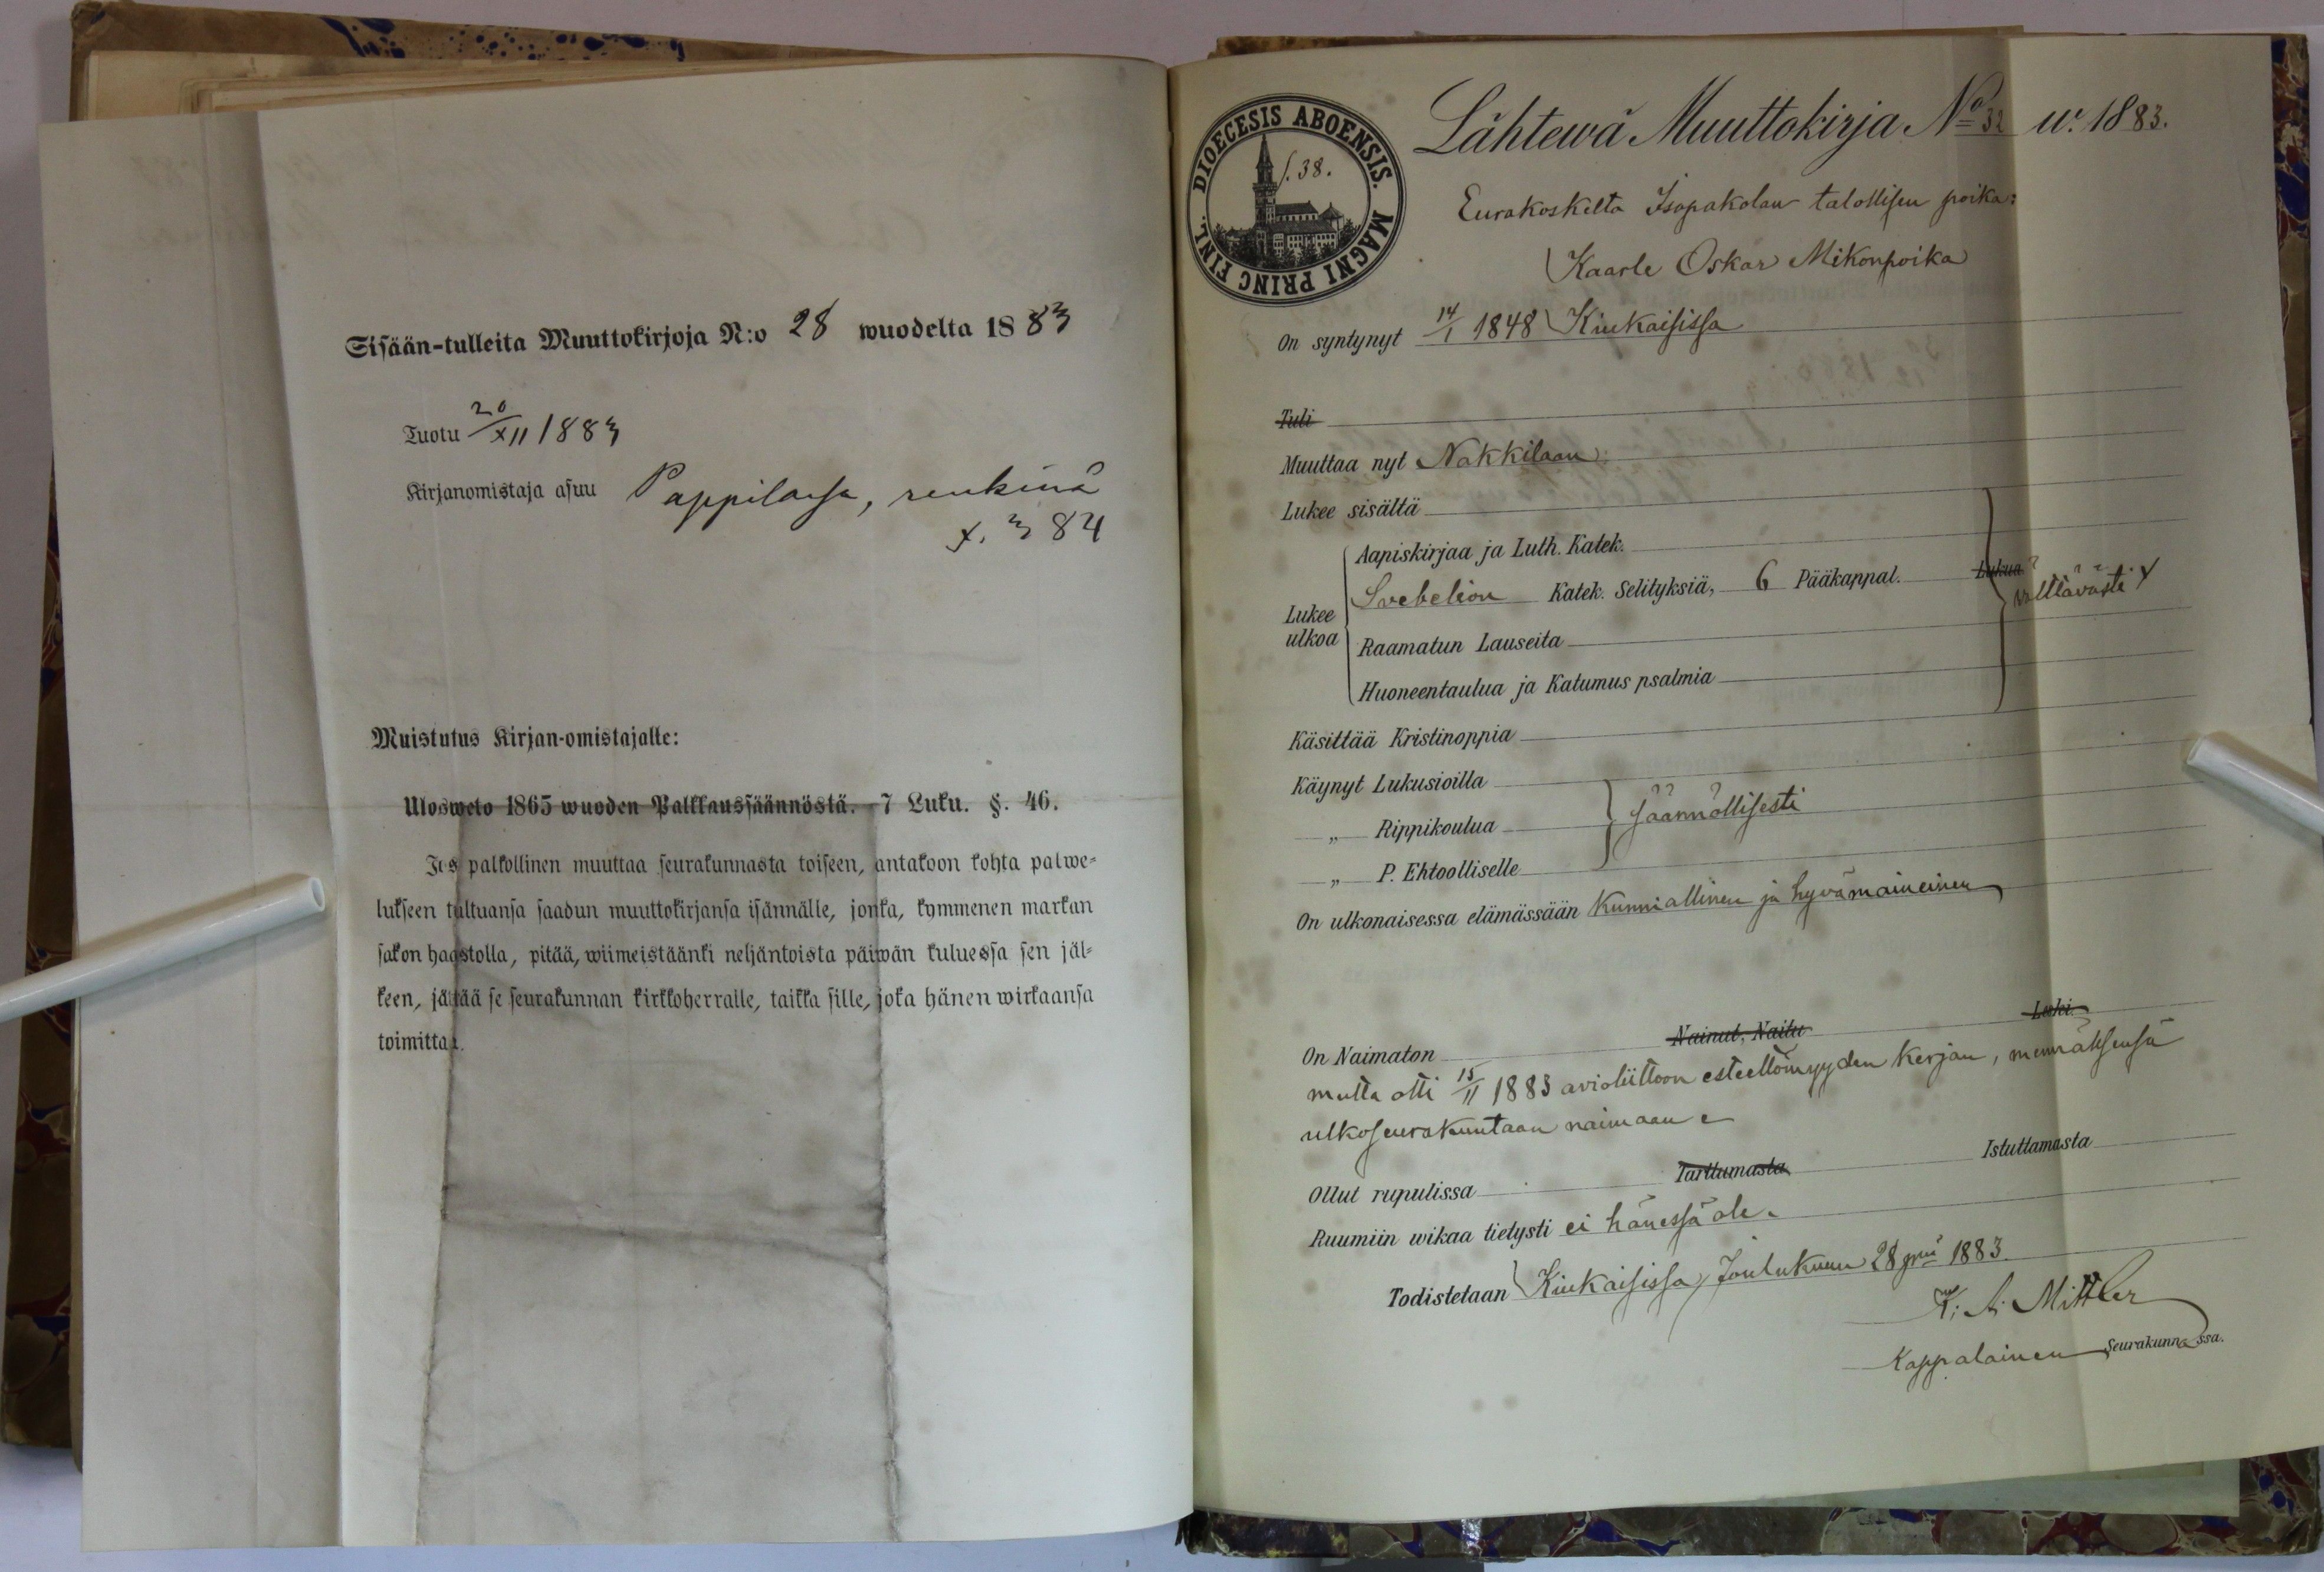 Sisään-tulleita Muuttokirjoja N:o 28 wuodelta 1883
Tuotu 20/XII 1883
Kirjanomistaja asuu Pappilassa, renkinä
384
Muistutus Kirjan-omistajalle:
Ulosweto 1865 wuoden Palkkaussäännöstä. 7 Luku. §. 46.
Jos palkollinen muuttaa seurakunnasta toiseen, antakoon kohta palwe-
lukseen tultuansa saadun muuttokirjansa isännälle, jonka, kymmenen markan
sakon haastolla, pitää, wiimeistäänki neljäntoista päiwän kuluessa sen jäl-
keen, jättää se seurakunnan kirkkoherralle, taikka sille, joka hänen wirkaansa
toimittaa.
DIOECESIS ABOENSIS. MAGNI PRINC FINL.
S. 38.
Lähtewä Muuttokirja No 32 w. 1883.
Eurakoskelta Isopakolan talollisen poika:
Kaarle Oskar Mikonpoika
On syntynyt 14/1 1848 Kiukaisissa
Tuli
Muuttaa nyt Nakkilaan
Lukee sisältä
Aapiskirjaa ja Luth. Katek.
Lukee ulkoa Svebelion Katek. Selityksiä, 6 Pääkappal. Lukua välttävästi
Raamatun Lauseita
Huoneentaulua ja Katumus psalmia
Käsittää Kristinoppia
Käynyt Lukusioilla
„ Rippikoulua säännöllisesti
„ P. Ehtoolliselle
On ulkonaisessa elämässään Kunniallinen ja hyvämaineinen
On Naimaton Nainut, Naitu Leski
mutta otti 15/11 1883 avioliittoon esteettömyyden kirjan, mennäksensä
ulkoseurakuntaan naimaan
Ollut rupulissa Tarttumasta Istuttamasta
Ruumiin wikaa tietysti ei hänessä ole.
Todistetaan Kiukaisissa, Joulukuun 28 pnä 1883.
K. A. Mittler
Kappalainen Seurakunnassa.